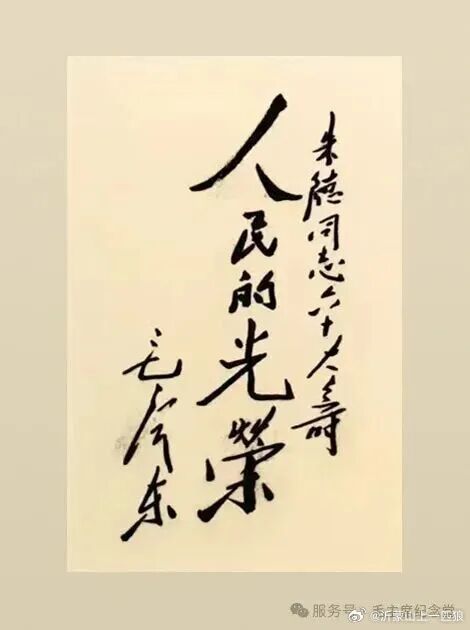 朱德同志六十大壽
人民的光榮
毛泽东
服务号 · 毛主席纪念堂
@沂蒙山上一匹狼